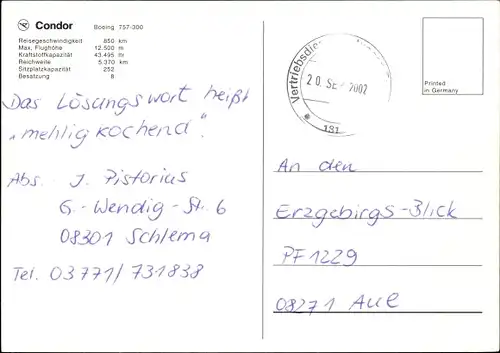 Condor
Boeing 757-300
Reisegeschwindigkeit 850 km
Max. Flughöhe 12.500 m
Kraftstoffkapazität 43.495 m
Reichweite 5.370 km
Sitzplatzkapazität 252
Besatzung 8
Das Lösungswort heißt
„mehlig kochend".
Abs. J. Pistorius
G.-Wendig-St. 6
08301 Schlema
Tel. 03771/731838
20. SEP. 2002
Printed
in Germany
An den
Erzgebirgs-Blick
PF 1229
08271 Aue